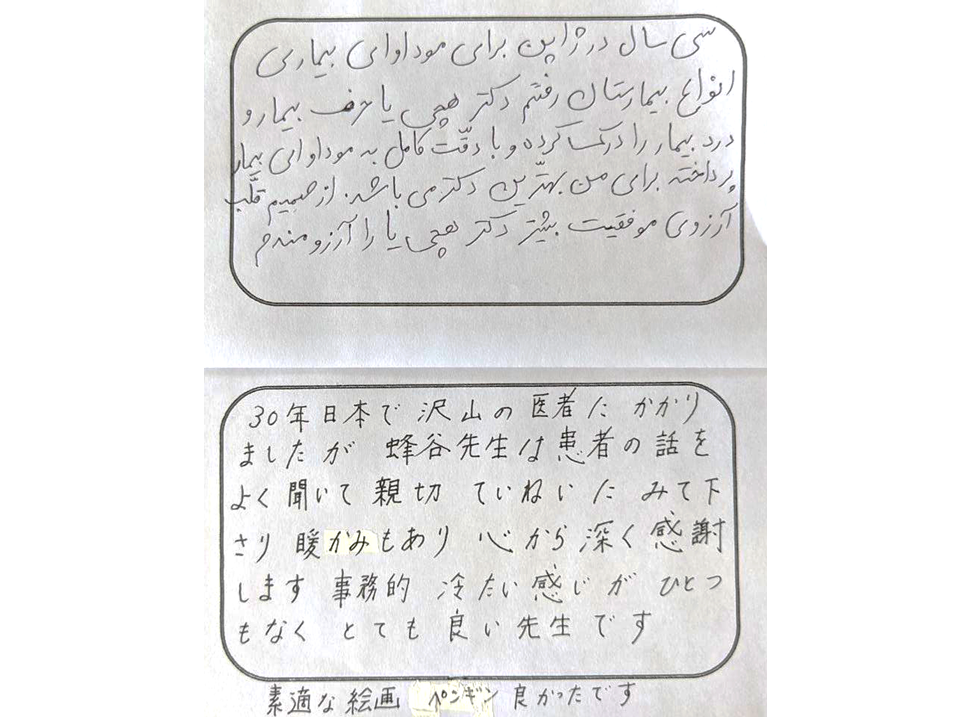 سی سال در ژاپن برای موداوای بیماری
انواع بیمارستان رفتم دکتر هچی یا حرف بیمار و
درد بیمار را درک کرده و با دقّت کامل به موداوائی بیمار
پرداخته برای من بهترین دکتر می باشد. از صمیم قلب
آرزوی موفقیت بیشتر دکتر هچی یا را آرزومندم
30年日本で 沢山の 医者に かかり
ましたが 蜂谷先生は患者の話を
よく聞いて 親切 ていねいに みて下
さり 暖かみもあり 心から深く感謝
します 事務的 冷たい感じが ひとつ
もなく とても 良い先生です
素適な絵画 ペンギン 良かったです